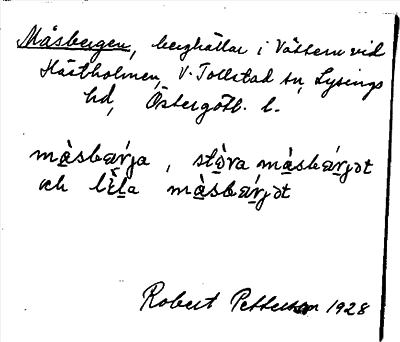 Måsbergen, berghällar i Vättern vid
Hästholmen, V. Tollstad sn, Lysings
hd, Östergötl. l.
måsbærja, stọ̀ra måsbærjət
och lɩ̀la måsbærjət
Robert Pettersson 1928